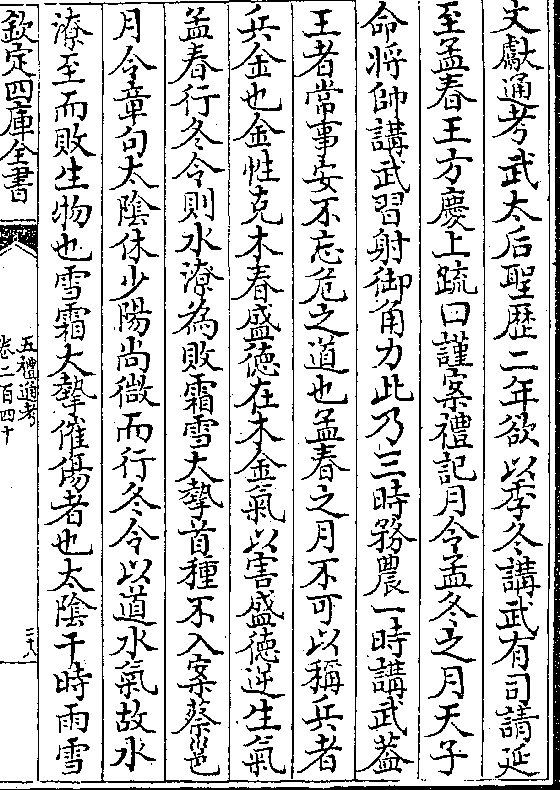 文獻通考武太后聖歷二年欲以季冬講武有司請延
至孟春王方慶上疏曰謹案禮記月令孟冬之月天子
命將帥講武習射御角力此乃三時務農一時講武蓋
王者常事安不忘危之道也孟春之月不可以稱兵者
兵金也金性克木春盛德在木金氣以害盛德逆生氣
孟春行冬令則水潦為敗霜雪大摯首種不入案蔡邕
月令章句太陰休少陽尚微而行冬令以道水氣故水
潦至而敗生物也雪霜大摯傷者也太陰干時雨雪
欽定四庫全書
五禮通考
卷二百四十
三八